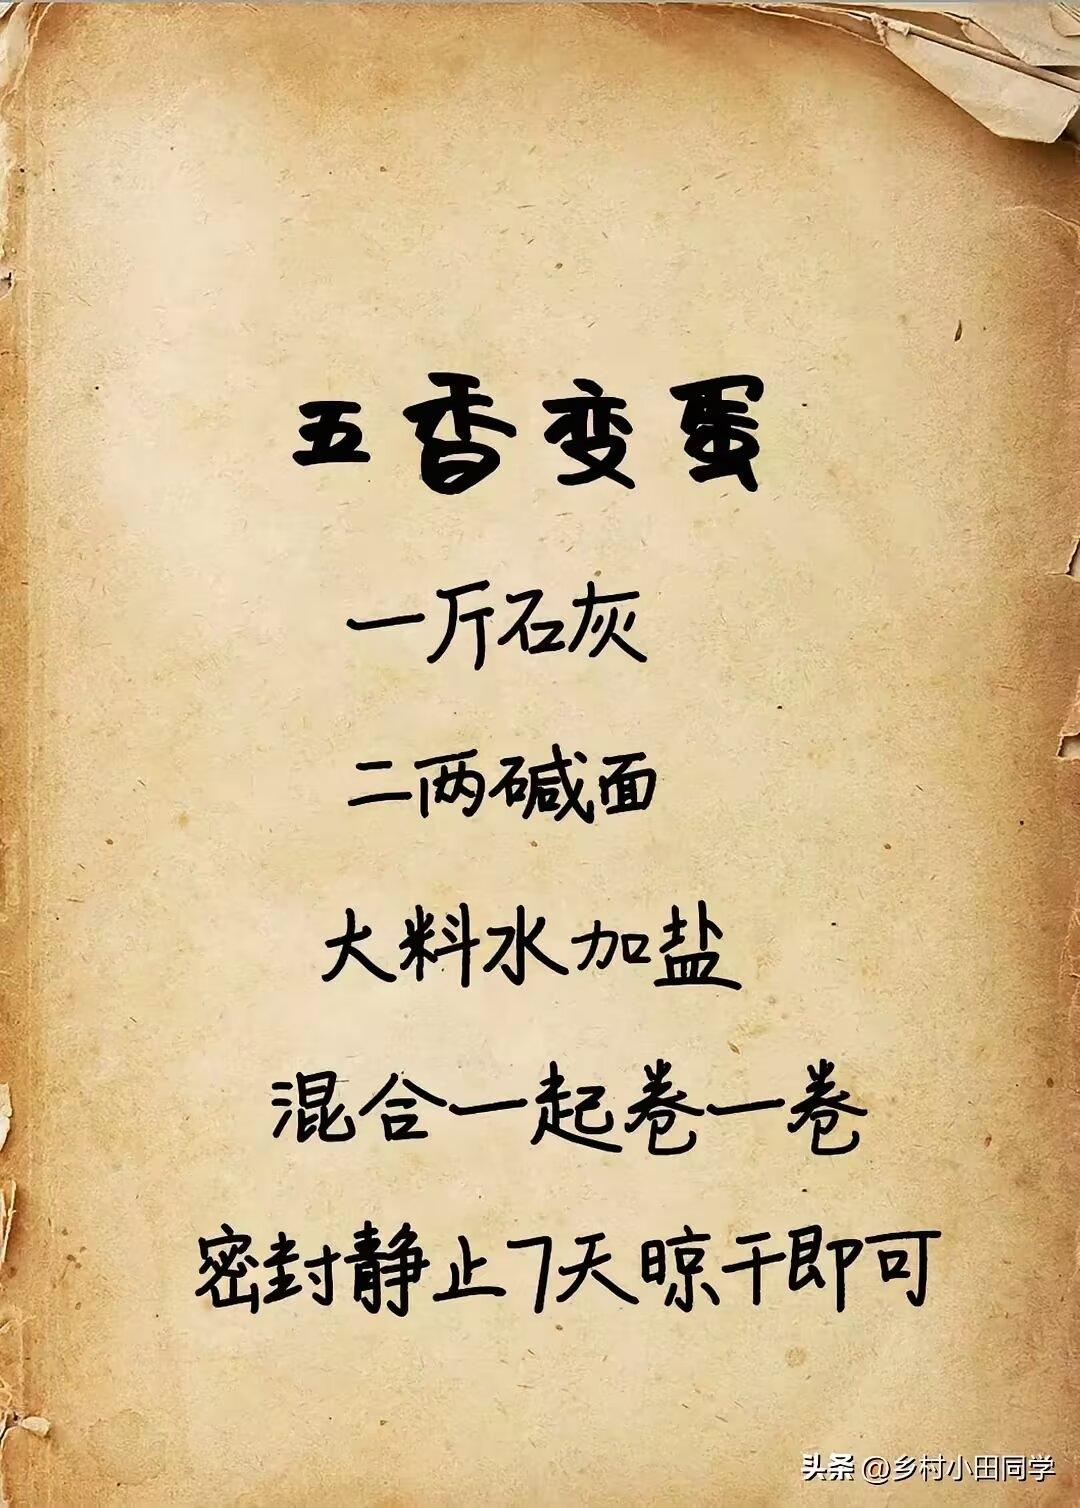 五香变蛋
一斤石灰
二两碱面
大料水加盐
混合一起卷一卷
密封静止7天晾干即可
头条 @乡村小田同学